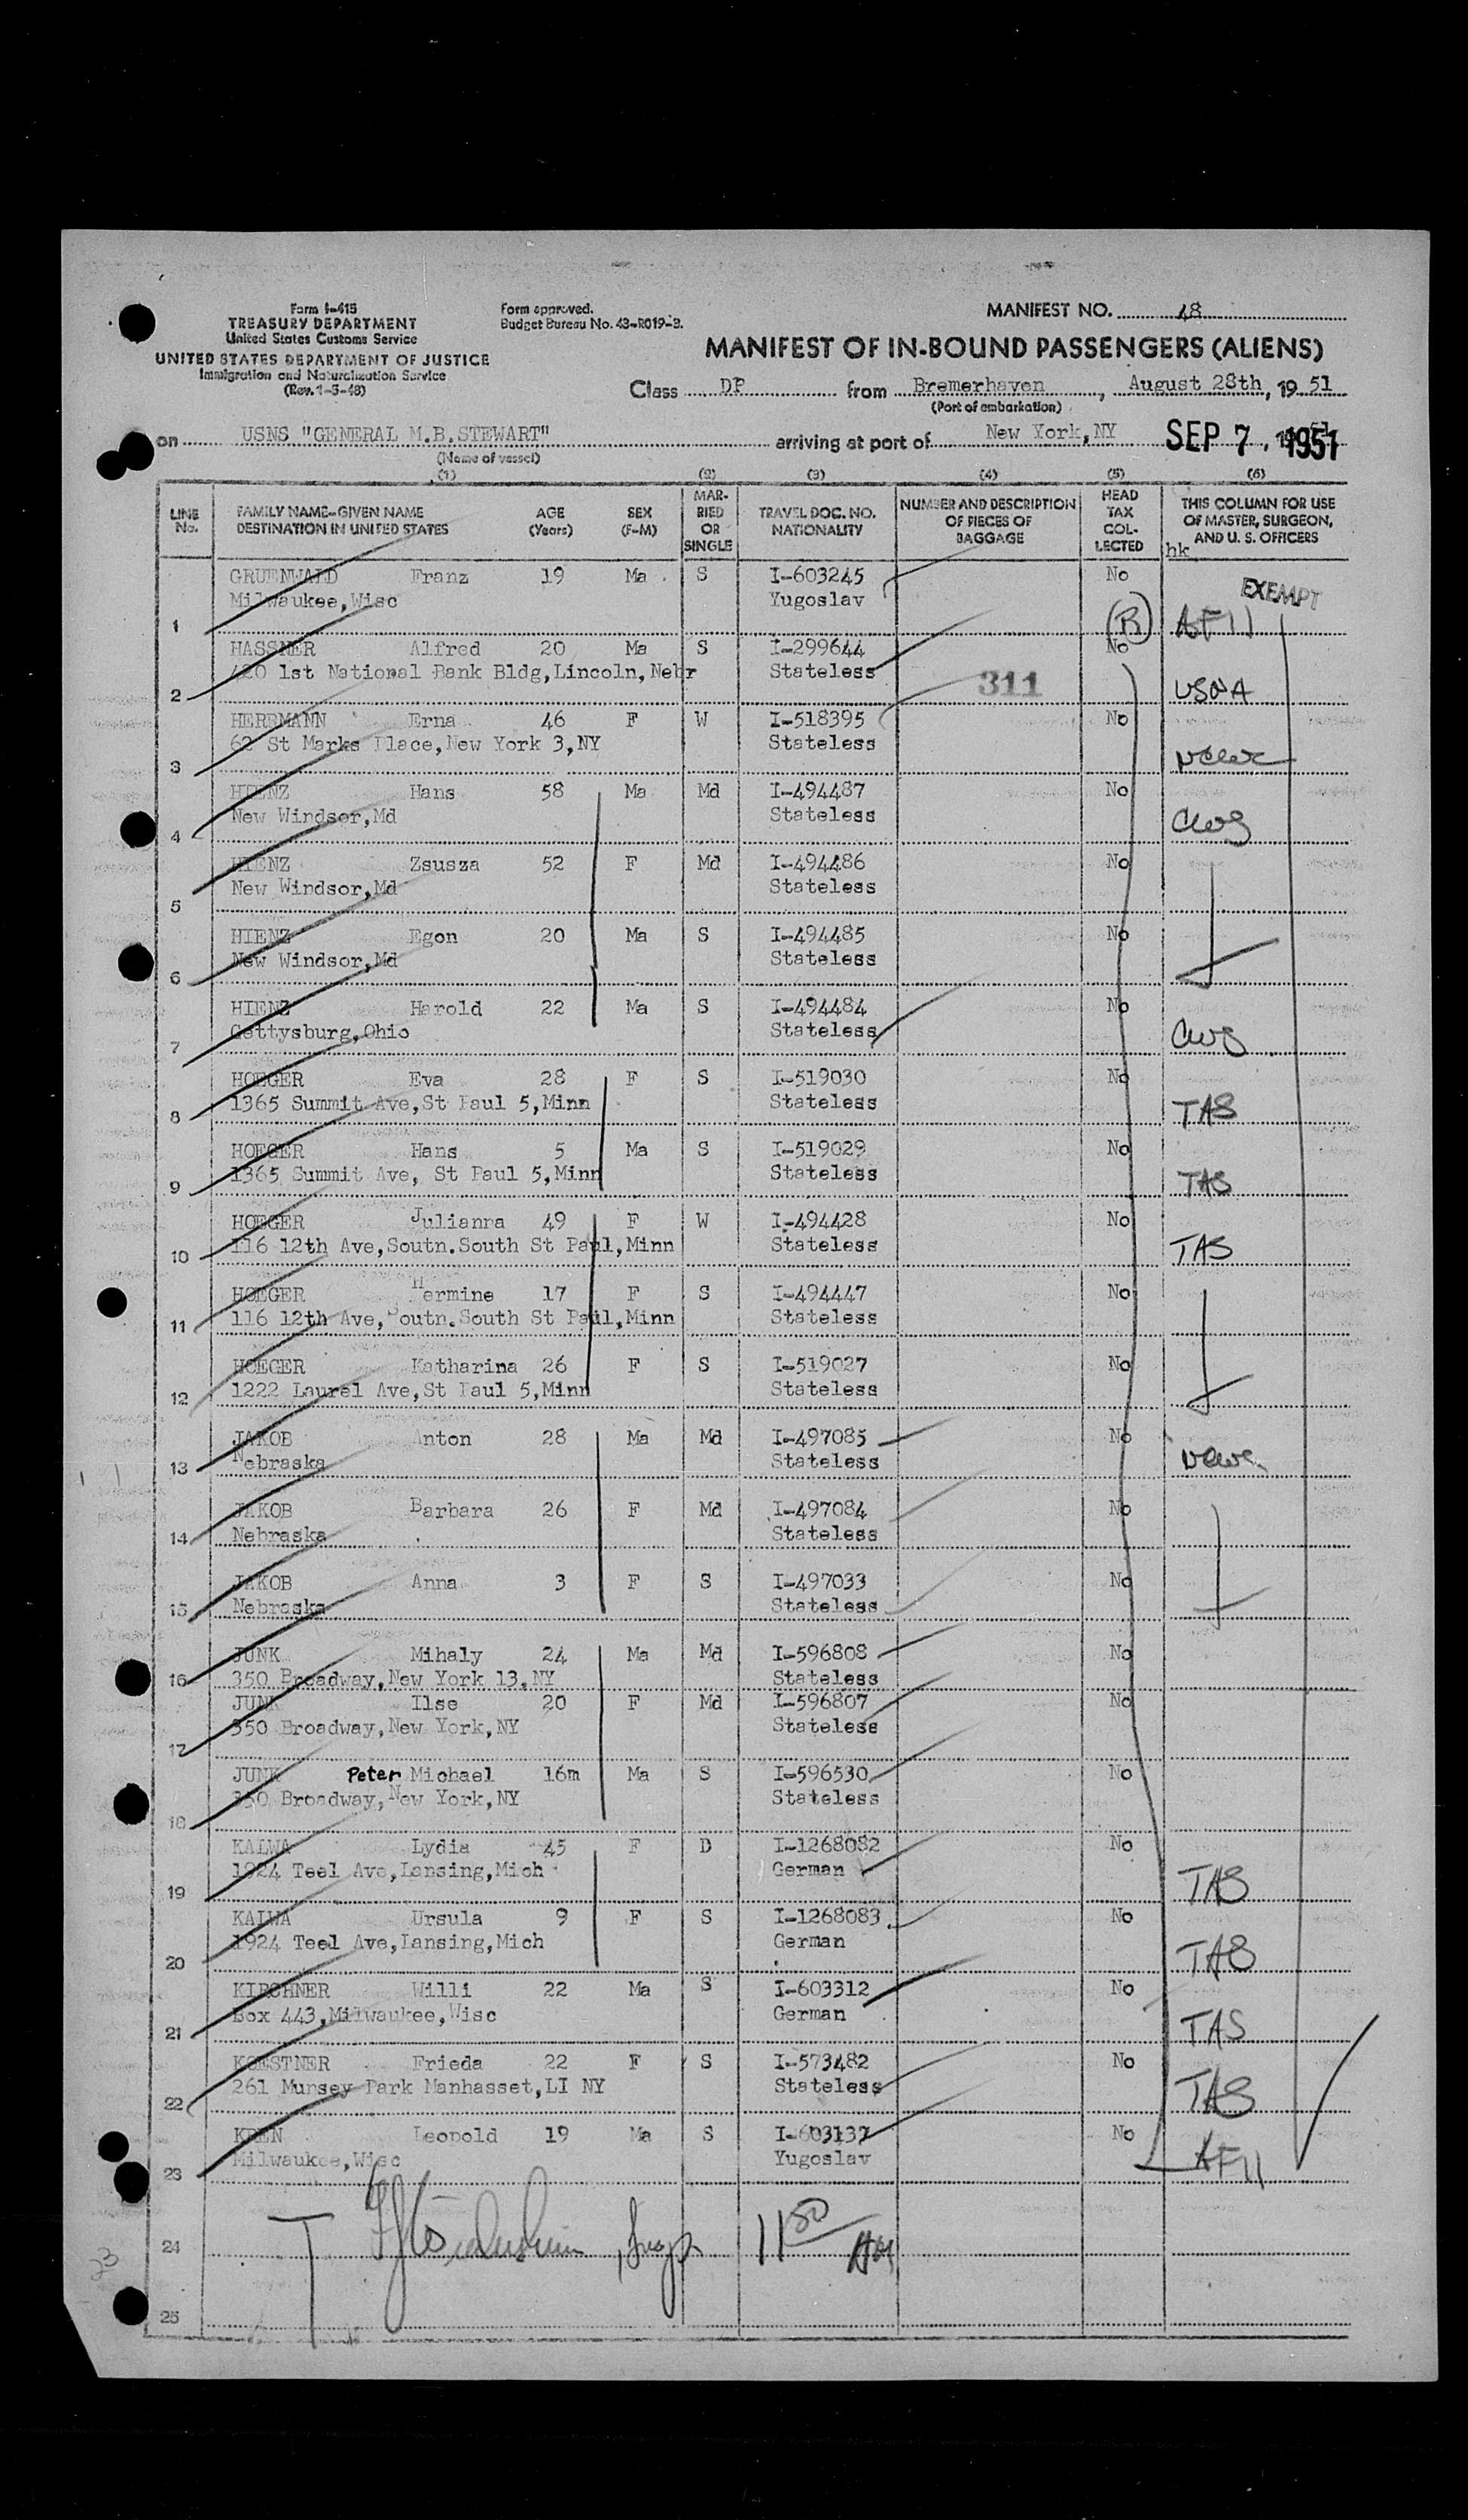 Form I-415
TREASURY DEPARTMENT
United States Customs Service
UNITED STATES DEPARTMENT OF JUSTICE
Immigration and Naturalization Service
(Rev. 1-5-48)
Form approved.
Budget Bureau No. 43-R019-3.
MANIFEST NO. 48
MANIFEST OF IN-BOUND PASSENGERS (ALIENS)
Class DP from Bremerhaven, August 28th, 19 51
(Port of embarkation)
on USNS "GENERAL M.B.STEWART" arriving at port of New York,NY SEP 7, 1951
(Name of vessel)
(1) (2) (3) (4) (5) (6)
LINE No. FAMILY NAME-GIVEN NAME DESTINATION IN UNITED STATES AGE (Years) SEX (F-M) MARRIED OR SINGLE TRAVEL DOC. NO. NATIONALITY NUMBER AND DESCRIPTION OF PIECES OF BAGGAGE HEAD TAX COLLECTED THIS COLUMN FOR USE OF MASTER, SURGEON, AND U. S. OFFICERS
hk
GRUENWALD Franz 19 Ma S I-603245 No EXEMPT
Milwaukee,Wisc Yugoslav
1 (R) AF11
HASSNER Alfred 20 Ma S I-299644 No
420 1st National Bank Bldg,Lincoln,Nebr Stateless 311
2
HERRMANN Erna 46 F W I-518395 No
62 St Marks Place,New York 3,NY Stateless
3
HIENZ Hans 58 Ma Md I-494487 No
New Windsor,Md Stateless
4 CWS
HIENZ Zsusza 52 F Md I-494486 No
New Windsor,Md Stateless
5
HIENZ Egon 20 Ma S I-494485 No
New Windsor,Md Stateless
6
HIENZ Harold 22 Ma S I-494484 No
Gettysburg,Ohio Stateless
7 CWS
HOEGER Eva 28 F S I-519030 No
1365 Summit Ave,St Paul 5,Minn Stateless
8 TAS
HOEGER Hans 5 Ma S I-519029 No
1365 Summit Ave, St Paul 5,Minn Stateless
9 TAS
HOEGER Julianna 49 F W I-494428 No
116 12th Ave,Soutn.South St Paul,Minn Stateless
10 TAS
HOEGER Hermine 17 F S I-494447 No
116 12th Ave,Soutn.South St Paul,Minn Stateless
11
HOEGER Katharina 26 F S I-519027 No
1222 Laurel Ave,St Paul 5,Minn Stateless
12
JAKOB Anton 28 Ma Md I-497085 No
Nebraska Stateless
13
JAKOB Barbara 26 F Md I-497084 No
Nebraska Stateless
14
JAKOB Anna 3 F S I-497033 No
Nebraska Stateless
15
JUNK Mihaly 24 Ma Md I-596808 No
16 350 Broadway,New York 13,NY Stateless
JUNK Ilse 20 F Md I-596807 No
350 Broadway,New York,NY Stateless
17
JUNK Peter Michael 16m Ma S I-596530 No
350 Broadway,New York,NY Stateless
18
KALWA Lydia 45 F D I-1268082 No
1924 Teel Ave,Lansing,Mich German
19 TAS
KALWA Ursula 9 F S I-1268083 No
1924 Teel Ave,Lansing,Mich German
20 TAS
KIRCHNER Willi 22 Ma S I-603312 No
Box 443,Milwaukee,Wisc German
21 TAS
KOESTNER Frieda 22 F S I-573482 No
261 Munsey Park Manhasset,LI NY Stateless
22 TAS
KREN Leopold 19 Ma S I-603137 No
Milwaukee,Wisc Yugoslav
23 AF11
24 11 50 AM
25
23